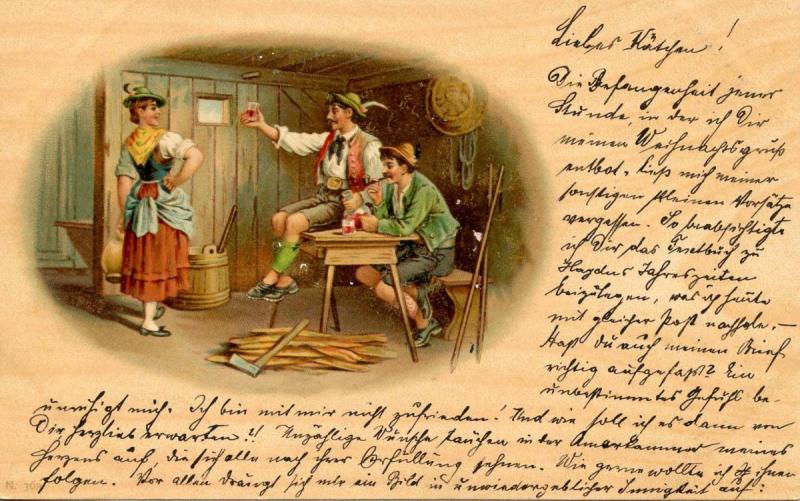 Liebes Kätchen!
Die Befangenheit jener
Stunde, in der ich Dir
meinen Weihnachtsgruß
entbot, ließ mich meiner
sonstigen kleinen Vorsätze
vergessen. So beabsichtigte
ich Dir das Textbuch zu
Haydns Jahreszeiten
beizulegen, was ich heute
mit gleicher Post nachhole. –
Hast Du auch meinen Brief
richtig aufgefaßt? Ein
unbestimmtes Gefühl be-
unruhigt mich. Ich bin mit mir nicht zufrieden! Und wie soll ich es dann von
Dir Herzlieb erwarten?! Unzählige Wünsche tauchen in der meines
Herzens auf, die sich alle nach ihrer Erfüllung sehnen. Wie gerne wollte ich ihnen
folgen. Vor allen drängt sich mir ein Bild in unwiedergeblicher Innigkeit auf:
N. 36